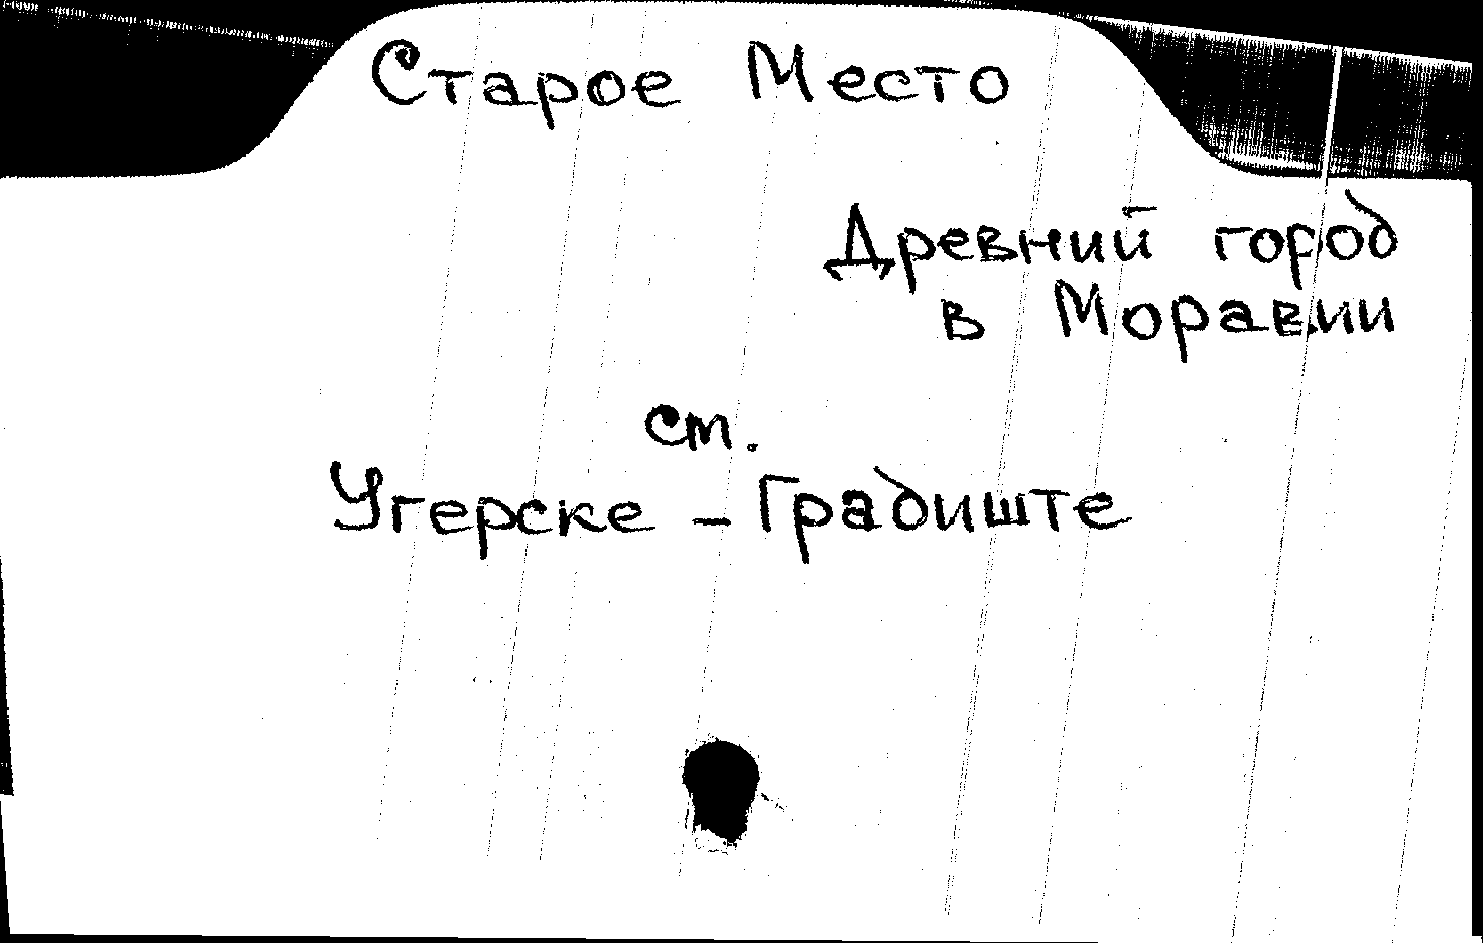 Старое Место
Древний город
в Моравии
ст.
Угерске - Градиште